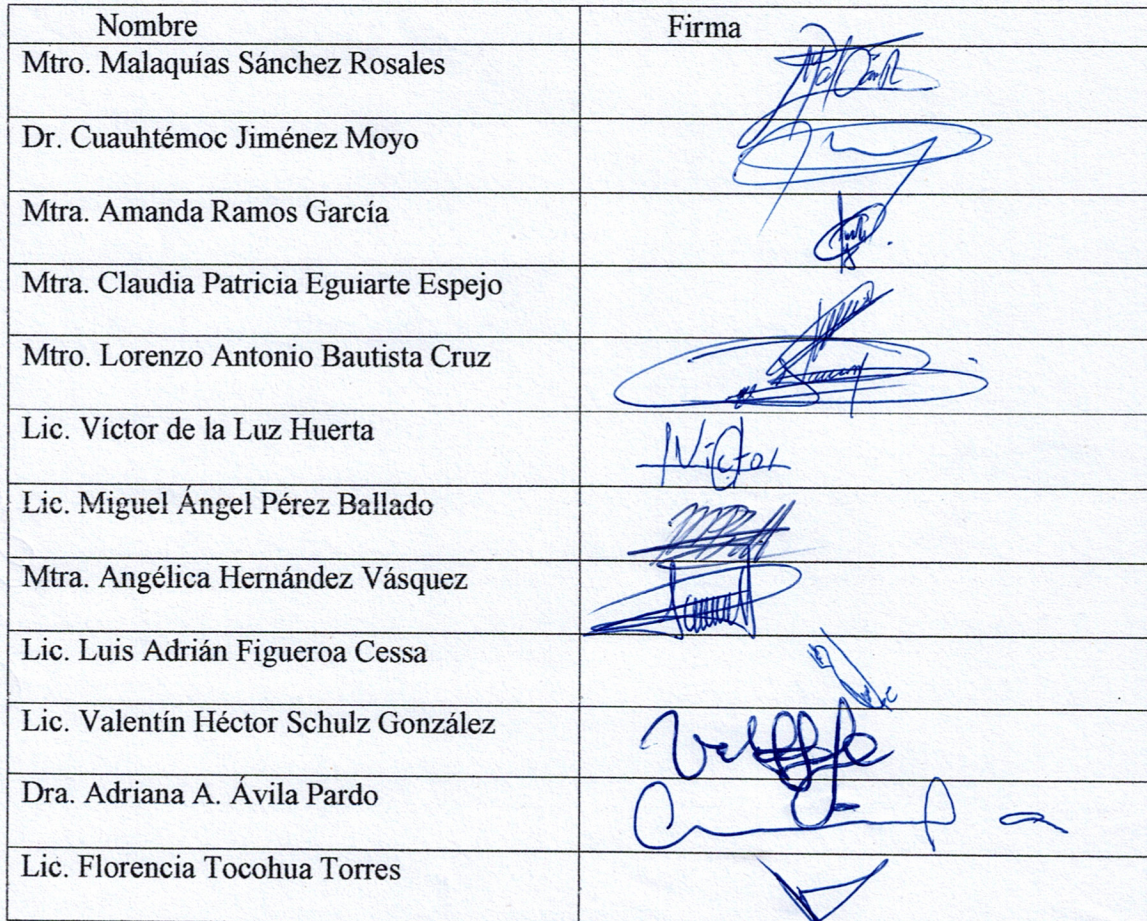 Nombre Firma
Mtro. Malaquías Sánchez Rosales
Dr. Cuauhtémoc Jiménez Moyo
Mtra. Amanda Ramos García
Mtra. Claudia Patricia Eguiarte Espejo
Mtro. Lorenzo Antonio Bautista Cruz
Lic. Víctor de la Luz Huerta Victor
Lic. Miguel Ángel Pérez Ballado
Mtra. Angélica Hernández Vásquez
Lic. Luis Adrián Figueroa Cessa
Lic. Valentín Héctor Schulz González
Dra. Adriana A. Ávila Pardo
Lic. Florencia Tocohua Torres